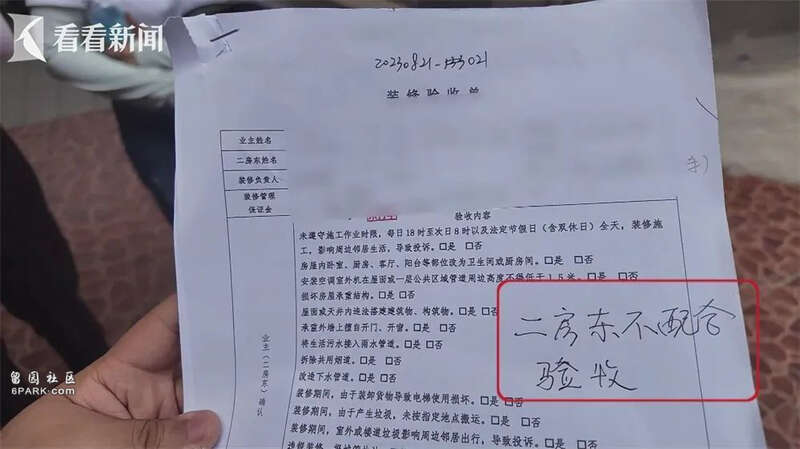 看看新闻
20230821-
装修验收单
业主姓名
二房东姓名
装修负责人
装修管理
保证金
验收内容
未遵守施工作业时限，每日18时至次日8时以及法定节假日（含双休日）全天，装修施
工，影响周边邻居生活，导致投诉。□是 □否
房屋内卧室、厨房、客厅、阳台等部位改为卫生间或厨房间。□是 □否
安装空调室外机在屋面或一层公共区域管道周边高度不得低于1.5米。□是 □否
损坏房屋承重结构。□是 □否
屋面或天井内违法搭建建筑物、构筑物。□是 □否
承重外墙上擅自开门、开窗。□是 □否
将生活污水接入雨水管道。□是 □否
拆除共用烟道。□是 □否
改造下水管道。□是 □否
装修期间，由于装卸货物导致电梯使用损坏。□是 □否
装修期间，由于产生垃圾，未按指定地点搬运。□是 □否
装修期间，室外或楼道垃圾影响周边邻居出行，导致投诉。□是 □否
业主（二房东）确认
二房东不配合
验收
留园社区
6PARK.COM